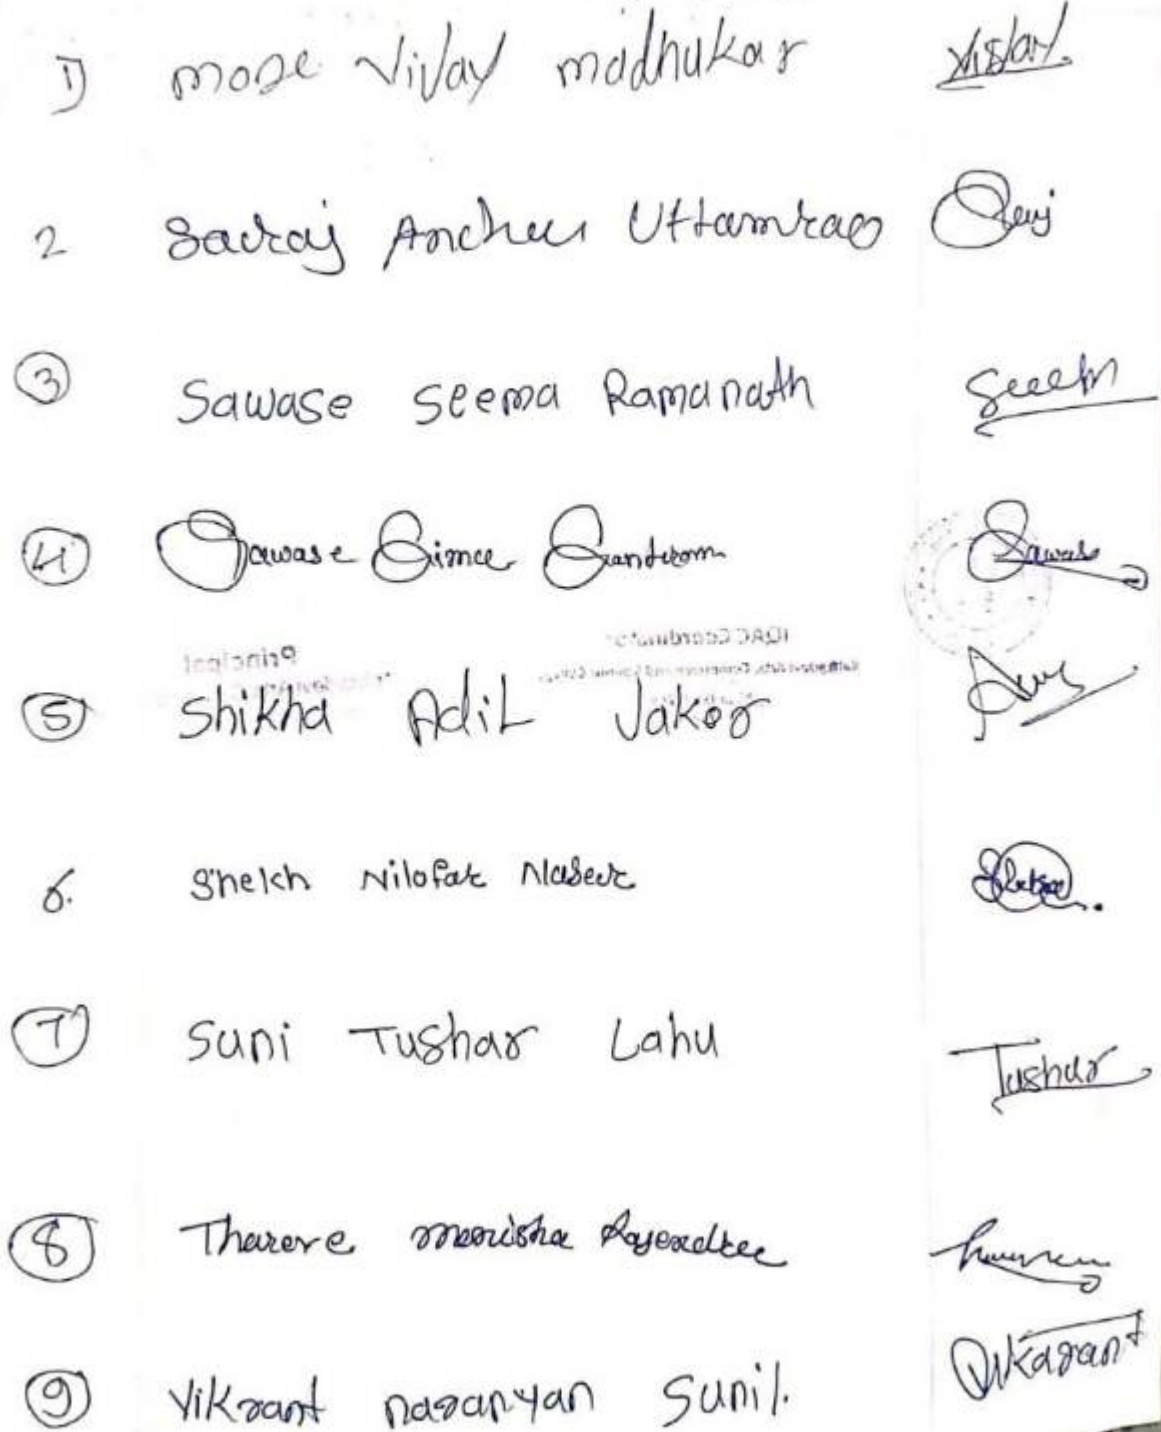 1) more Vijay madhukar Vijay.
2 Savraj Uttamrao
3 Sawase Seema Ramanath Seem
4 Sawase Simee Sawase
Principal IQAC Coordinator
5 Shikha Adil Jakor
6. Shekh Nilofar Naseer
7 Suni Tushar Lahu Tushar
8 Tharere manisha Rajendree
9 Vikrant naranyan Sunil. Vikarant